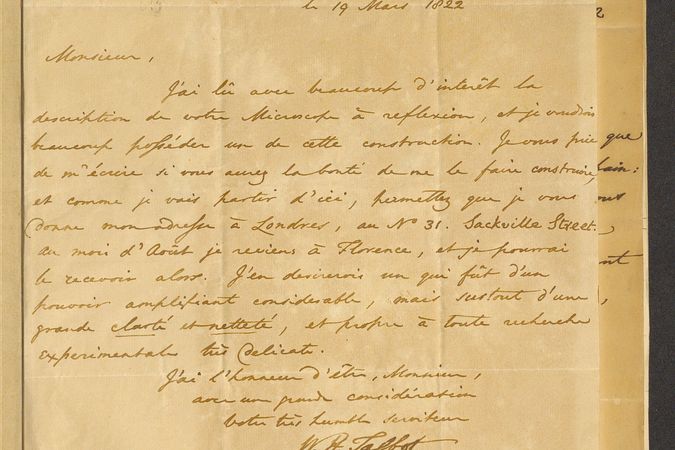 le 19 Mars 1822
Monsieur,
J'ai lû avec beaucoup d'interêt la
description de votre Microscope à reflexion, et je voudrois
beaucoup posséder un de cette construction. Je vous prie
de m'écrire si vous aurez la bonté de me le faire construire,
et comme je vais partir d'ici, permettez que je vous
donne mon adresse à Londres, au No 31. Sackville Street.
Au mois d'Août je reviens à Florence, et je pourrai
le recevoir alors. J'en desirerois un qui fût d'un
pouvoir amplifiant considerable, mais surtout d'une
grande clarté et netteté, et propre à toute recherche
experimentale très delicate.
J'ai l'honneur d'être, Monsieur,
avec un grande considération
votre très humble serviteur
W H Talbot
que
ont